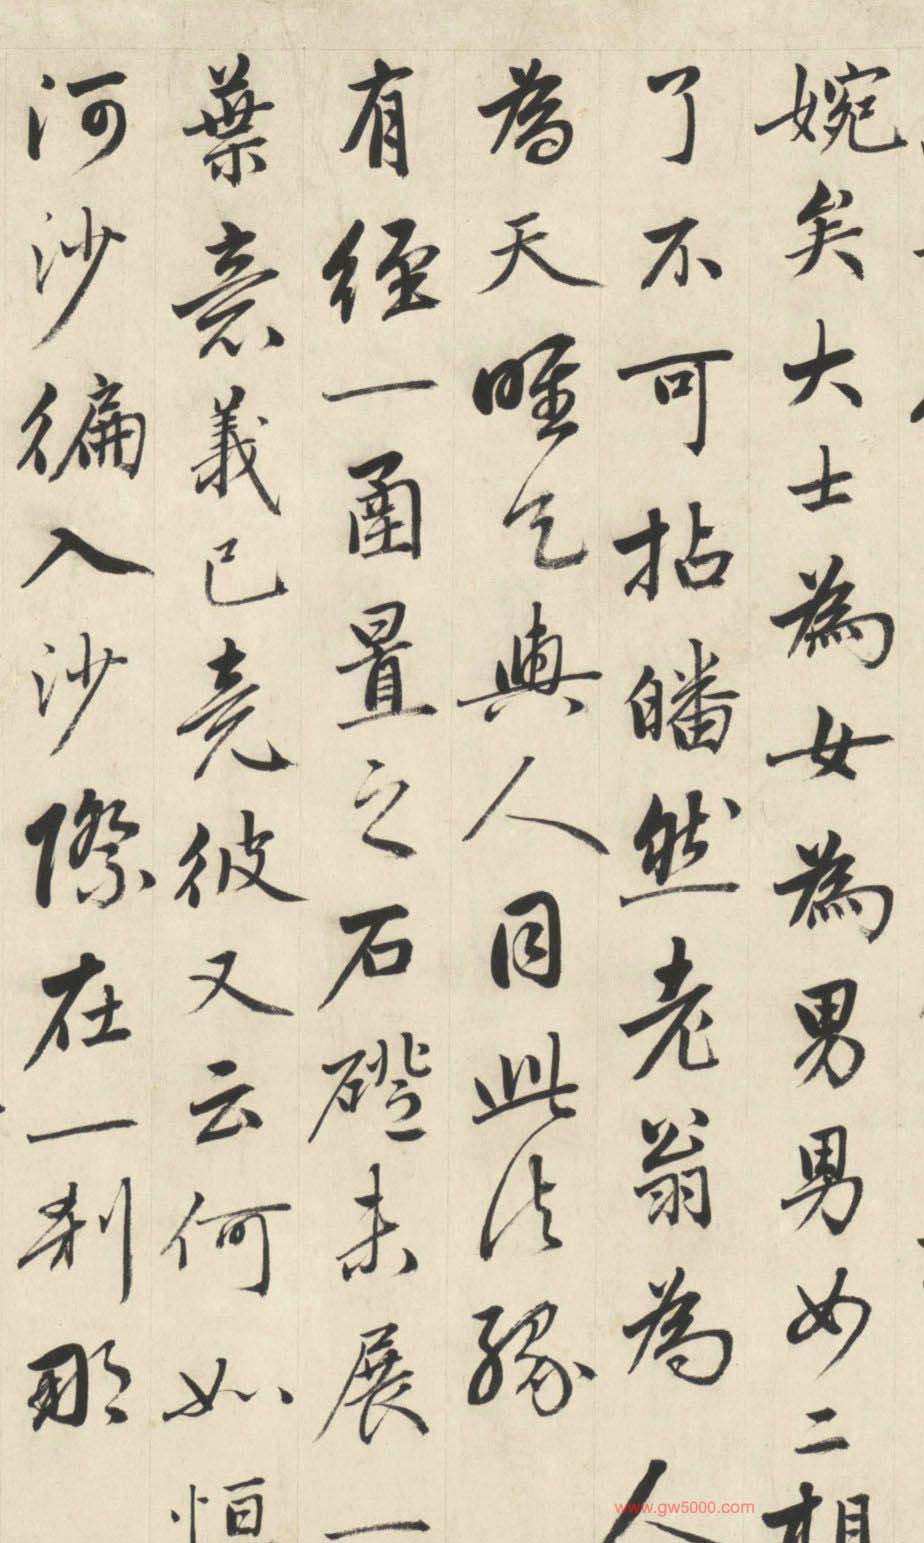 婉矣大士為女為男男女二相
了不可拈皤然老翁為人
為天唯之與人目此法緣
有經一函置之石磴未展一
葉意義已竟彼又云何如恒
河沙徧入沙際在一刹那
www.gw5000.com